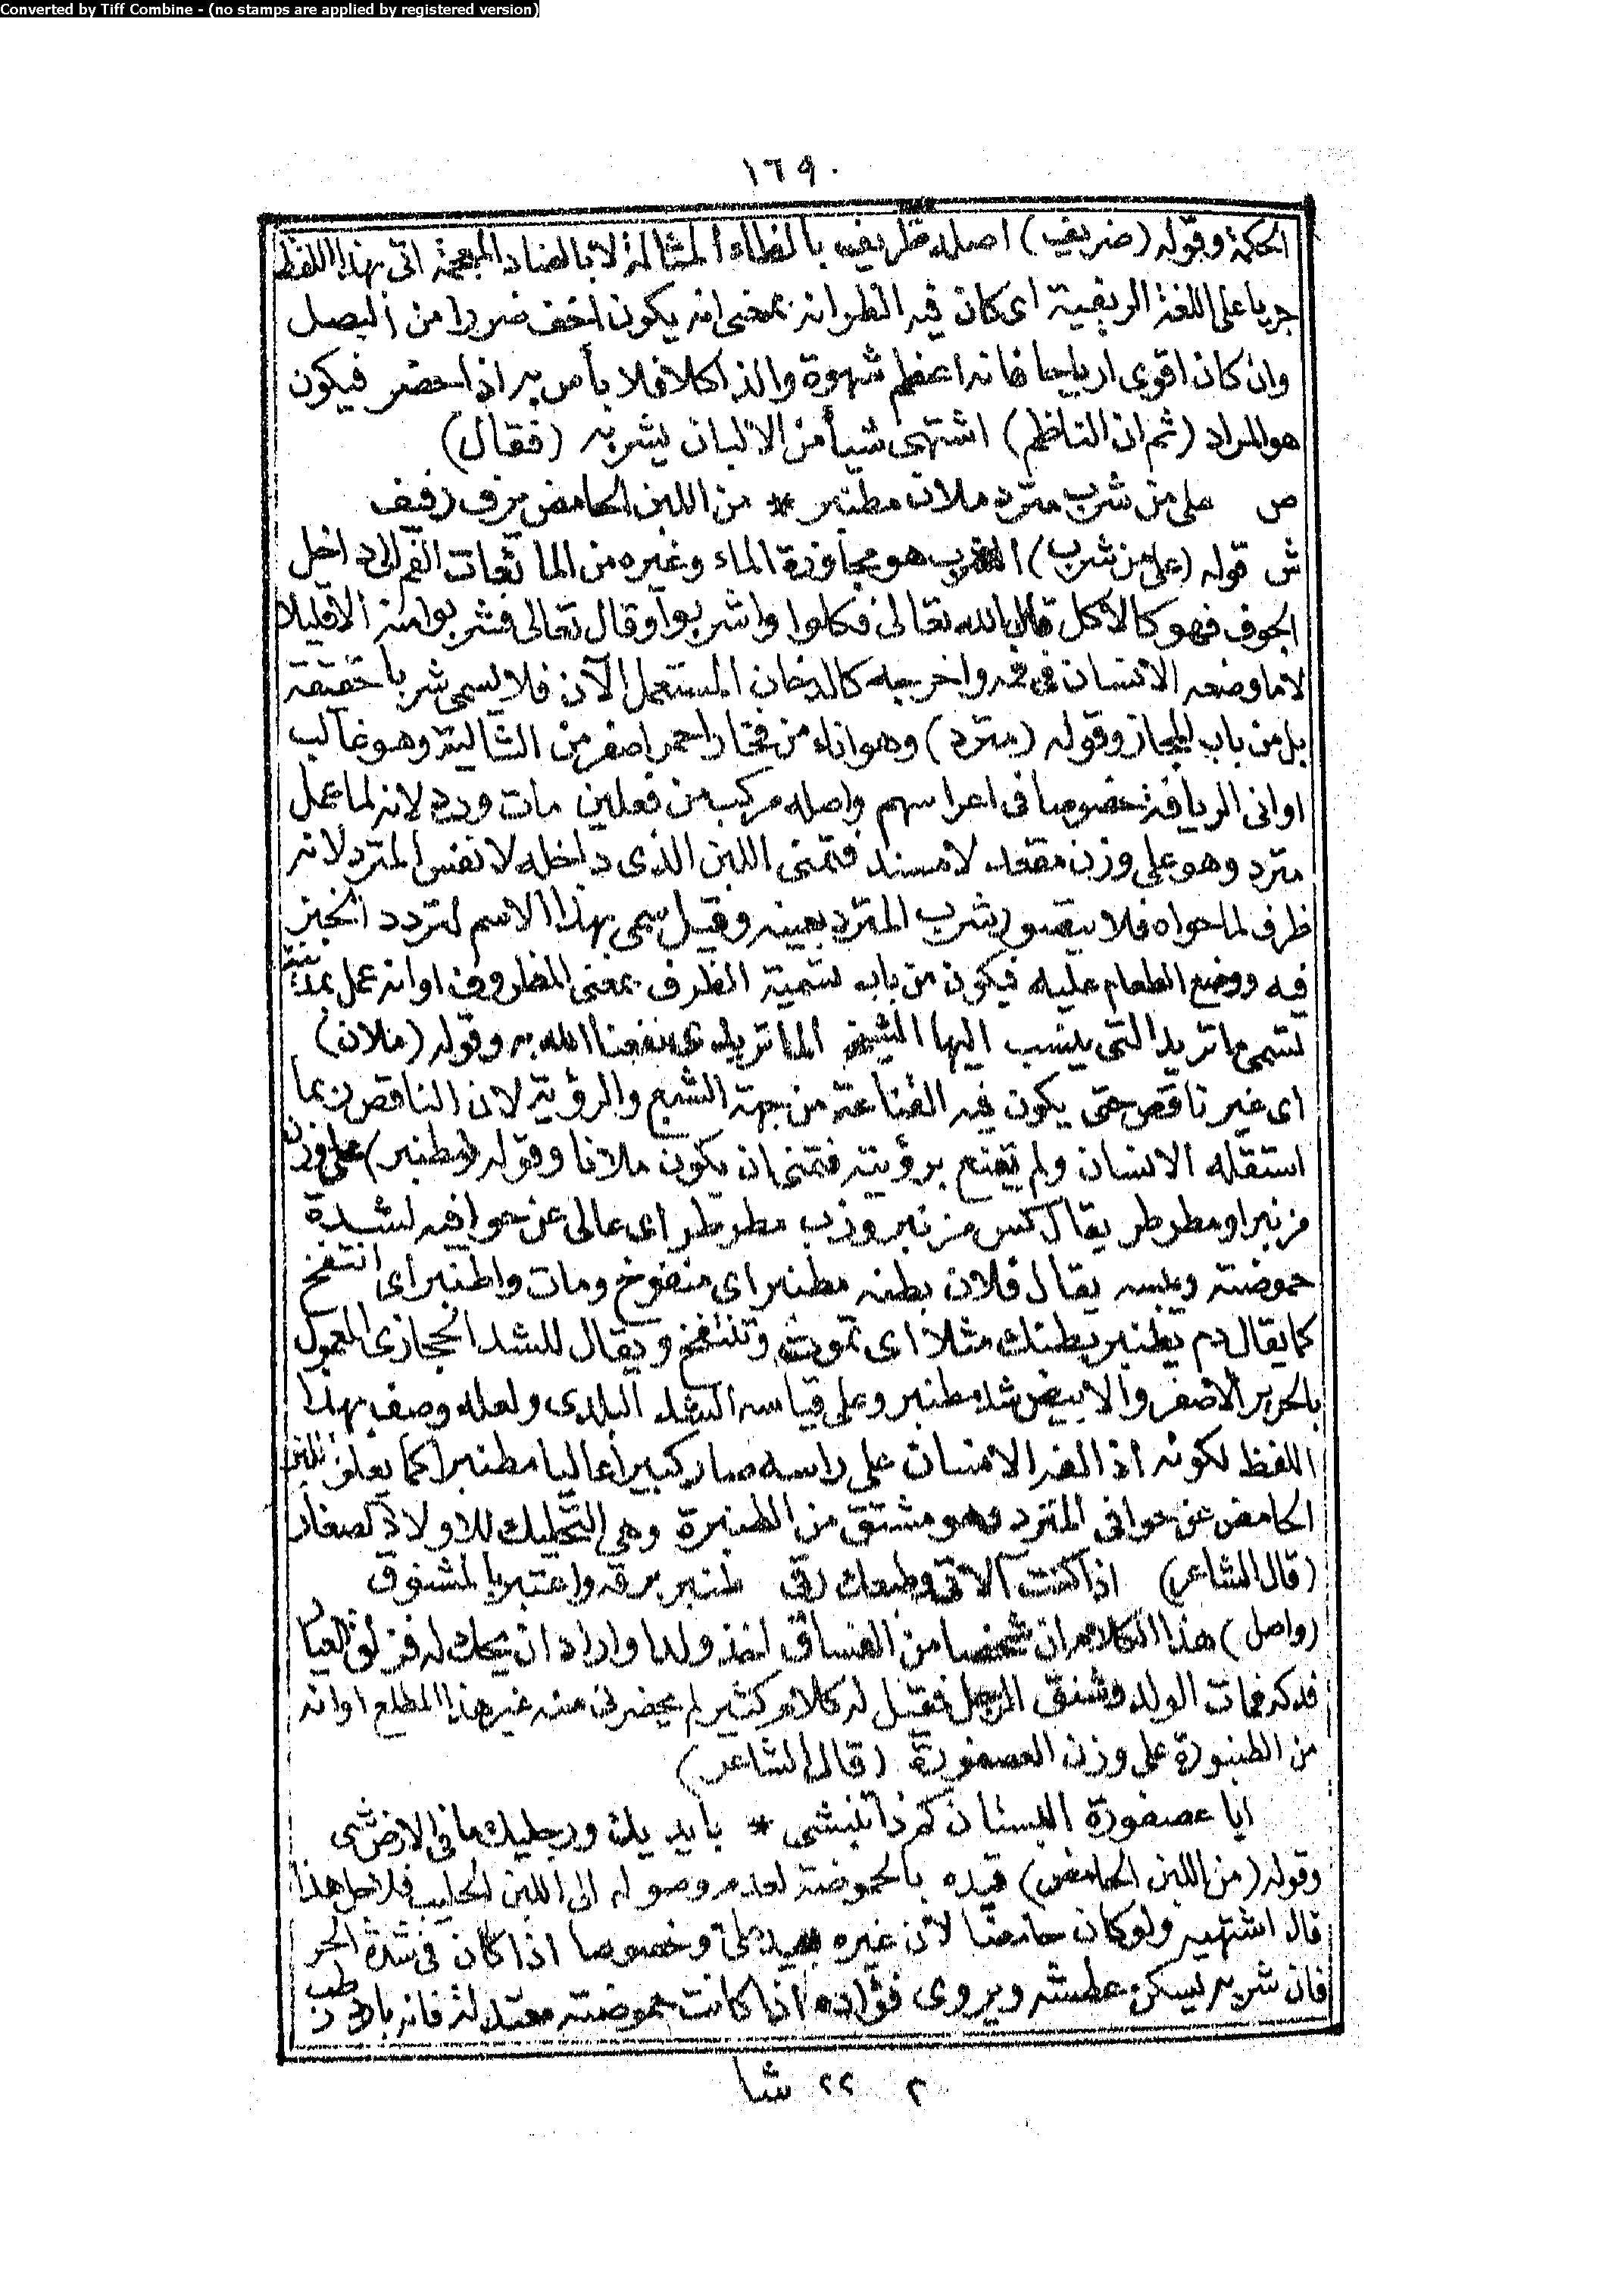 Converted by Tiff Combine - (no stamps are applied by registered version)
١٦٩
الحكمة وقوله (ضريف) اصله ظريف بالظاء المشالة لا بالضاد المعجمة اتى بهذا اللفظ
جريا على اللغة الريفية اى كان فيه الظرافة بمعنى انه يكون اخف ضررا من البصل
وان كان اقوى ارياحا فانه اعظم شهوة والذ اكلا فلا بأس به اذا حضر فيكون
هو المراد (ثم ان الناظم) اشتهى شيأ من الالبان يشربه (فقال)
ص على من شرب مترد ملان مطنبر * من اللبن الحامض يرف رفيف
ش قوله (على من شرب) الشرب هو مجاوزة الماء وغيره من المائعات الفم الى داخل
الجوف فهو كالاكل قال الله تعالى فكلوا واشربوا وقال تعالى فشربوا منه الا قليلا
لا ما وضعه الانسان فى فمه واخرجه كالدخان المستعمل الآن فلا يسمى شربا حقيقة
بل من باب المجاز وقوله (مترد) وهو اناء من فخار احمر اصغر من الشالية وهو غالب
اوانى الريافة خصوصا فى اعراسهم واصله مركب من فعلين مات ورد لانه لما عمل
مترد وهو على وزن مقعد لا مسند فتمنى اللبن الذى داخله لا نفس المترد لانه
ظرف لما حواه فلا يتصور شرب المترد بعينه وقيل سمى بهذا الاسم لتردد الخبز
فيه ووضع الطعام عليه فيكون من باب تسمية الظرف بمعنى المظروف او انه عمل بمدينة
تسمى ماتريد التى ينسب اليها الشيخ الماتريدى نفعنا الله به وقوله (ملان)
اى غير ناقص حتى يكون فيه القناعة من جهة الشبع والرؤية لان الناقص ربما
استقله الانسان ولم يقنع برؤيته فتمنى ان يكون ملانا وقوله (مطنبر) على وزن
مزنبر او مطرطر يقال كس مزنبر وزب مطرطر اى عالى عن حوافيه لشدة
حموضته ويبسه يقال فلان بطنه مطنبر اى منفوخ ومات واطنبر اى انتفخ
كما يقال دم يطنبر بطنك مثلا اى تموت وتنتفخ ويقال للشد الحجازى المعمول
بالحرير الاصفر والابيض شد مطنبر وعلى قياسه الشد البلدى ولعله وصف بهذا
اللفظ لكونه اذا لفه الانسان على راسه صار كبيرا عاليا مطنبرا كما يعلو اللبن
الحامض عن حوافى المترد وهو مشتق من الطنبرة وهى التحليك للاولاد الصغار
(قال الشاعر) اذا كنت الاقى وطبعك رقى طنبر برقه واعتبر بالمشنوق
(واصل) هذا الكلام ان شخصا من الفساق اخذ ولدا واراد ان يحك له فزلق العيار
فدكه فمات الولد وشنق الرجل فقيل له كلام كثير لم يحضرنى منه غير هذا المطلع او انه
من الطنبورة على وزن العصفورة (قال الشاعر)
ايا عصفورة البستان كم ذا تنبشى * بايديك ورجليك ما فى الارض شى
وقوله (من اللبن الحامض) قيده بالحموضة لعدم وصوله الى اللبن الحليب فلاجل هذا
قال اشتهيه ولو كان حامضا لان غيره وخصوصا اذا كان فى شدة الحر
فان شربه يسكن عطشه ويروى فؤاده اذا كانت حموضته معتدلة فانه بارد رطب
٢ ٢٢ شا